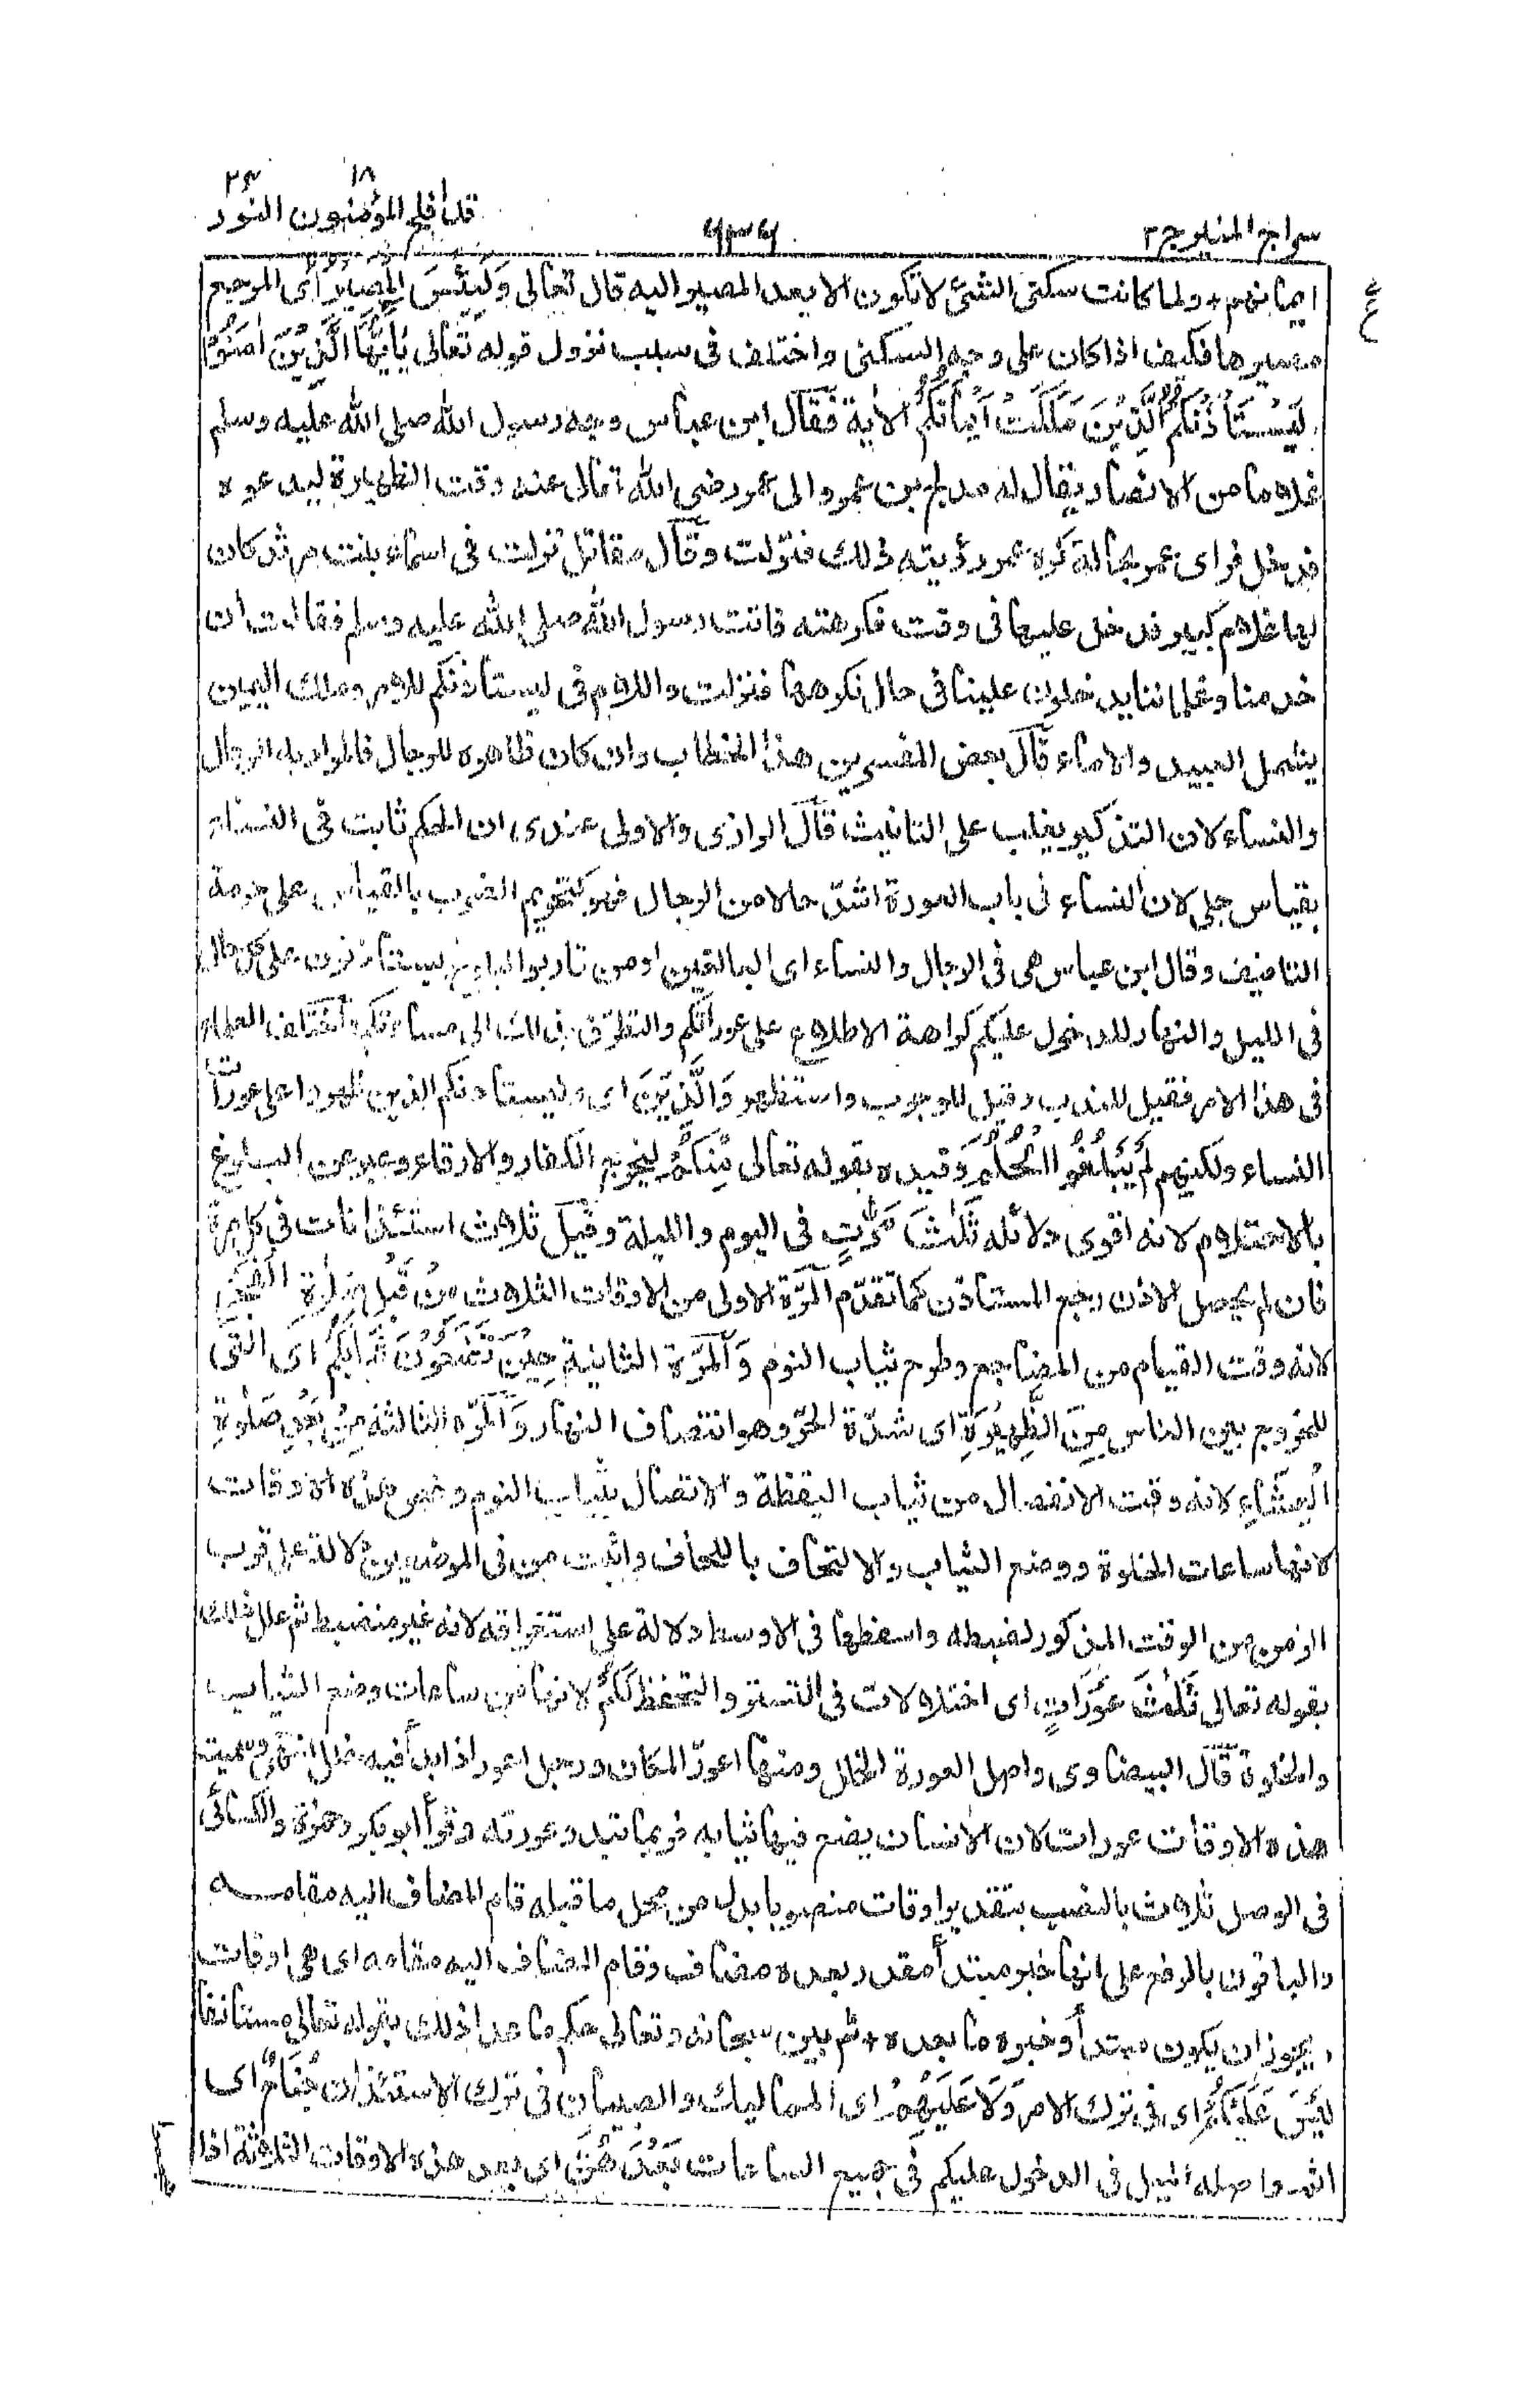 سراج المنير ج٣
٦٣٦
قد أفلح المؤمنون النور
١٨
٢٤
ع
ايمانهم + ولما كانت سكنى الشئ لا تكون الا بعد المصير اليه قال تعالى وَلَبِئْسَ الْمَصِيرُ اى المرجع
مصيرها فكيف اذا كان على وجه السكنى واختلف فى سبب نزول قوله تعالى يٰاَيُّهَا الَّذِيْنَ اٰمَنُوْا
لِيَسْتَأْذِنْكُمُ الَّذِيْنَ مَلَكَتْ اَيْمَانُكُمْ الاٰية فقال ابن عباس وجه رسول الله صلى الله عليه وسلم
غلاما من الانصار يقال له مدلج بن عمرو الى عمر رضى الله تعالى عنه وقت الظهيرة ليدعوه
فدخل فراى عمر بحالة كره عمر رؤيته ذلك فنزلت وقال مقاتل نزلت فى اسماء بنت مرثد كان
لها غلام كبير فدخل عليها فى وقت فكرهته فاتت رسول الله صلى الله عليه وسلم فقالت ان
خدمنا وغلماننا يدخلون علينا فى حال نكرهها فنزلت واللام فى ليستأذنكم للامر وملك اليمين
يشمل العبيد والاماء قال بعض المفسرين هذا الخطاب وان كان ظاهره للرجال فالمراد به الرجال
والنساء لان التذكير يغلب على التانيث قال الرازى والاولى عندى ان الحكم ثابت فى النساء
بقياس جلى لان النساء فى باب العورة اشدّ حالا من الرجال فهو كتحريم الضرب بالقياس على حرمة
التافيف وقال ابن عباس هى فى الرجال والنساء اى البالغين او من قاربوا البلوغ يستأذنون على كل حال
فى الليل والنهار للدخول عليكم كراهة الاطلاع على عوراتكم والتطرّق بذلك الى مساءتكم واختلف العلماء
فى هذا الامر فقيل للندب وقيل للوجوب واستظهر وَالَّذِيْنَ اى وليستاذنكم الذين ظهروا على عورات
النساء ولكنهم لَمْ يَبْلُغُوا الْحُلُمَ وقيده بقوله تعالى مِنْكُمْ ليخرج الكفار والارقاء وعبر عن البلوغ
بالاحتلام لانه اقوى دلائله ثَلٰثَ مَرّٰتٍ فى اليوم والليلة وقيل ثلاث استئذانات فى كل مرة
فان لم يحصل الاذن رجع المستاذن كما تقدّم المرّة الاولى من الاوقات الثلاث مِنْ قَبْلِ صَلٰوةِ الْفَجْرِ
لانه وقت القيام من المضاجع وطرح ثياب النوم وَالمرّة الثانية حِيْنَ تَضَعُوْنَ ثِيَابَكُمْ اى التى
للخروج بين الناس مِنَ الظَّهِيْرَةِ اى شدّة الحرّ وهو انتصاف النهار وَالمرّة الثالثة مِنْ بَعْدِ صَلٰوةِ
الْعِشَاءِ لانه وقت الانفصال من ثياب اليقظة والاتصال بثياب النوم وخص هذه الاوقات
لانها ساعات الخلوة ووضع الثياب والالتحاف باللحاف واثبت من فى الموضعين دلالة على قرب
الزمن من الوقت المذكور لضبطه واسقطها فى الاوسط دلالة على استغراقه لانه غير منضبط ثم علل ذلك
بقوله تعالى ثَلٰثُ عَوْرَاتٍ اى اختلالات فى التستر والتحفظ لَكُمْ لانها من ساعات وضع الثياب
والخلوة قال البيضاوى واصل العورة الخلل ومنها اعورّ المكان ورجل اعور اذا بدأ فيه خلل انتهى وسميت
هذه الاوقات عورات لان الانسان يضع فيها ثيابه فربما تبدو عورته وقرأ ابو بكر وحمزة والكسائى
فى الوصل ثلاث بالنصب بتقدير اوقات منصوبا بدلا من محل ما قبله قام المضاف اليه مقامه
والباقون بالرفع على انها خبر مبتدأ مقدر بعده مضاف وقام المضاف اليه مقامه اى هى اوقات
ويجوز ان يكون مبتدأ وخبره ما بعده + ثم بين سبحانه وتعالى حكم ما عدا ذلك بقوله تعالى مستانفا
لَيْسَ عَلَيْكُمْ اى فى ترك الامر وَلَا عَلَيْهِمْ اى المماليك والصبيان فى ترك الاستئذان جُنَاحٌ اى
اثم واصله الميل فى الدخول عليكم فى جميع الساعات بَعْدَهُنَّ اى بعد هذه الاوقات الثلاثة اذا